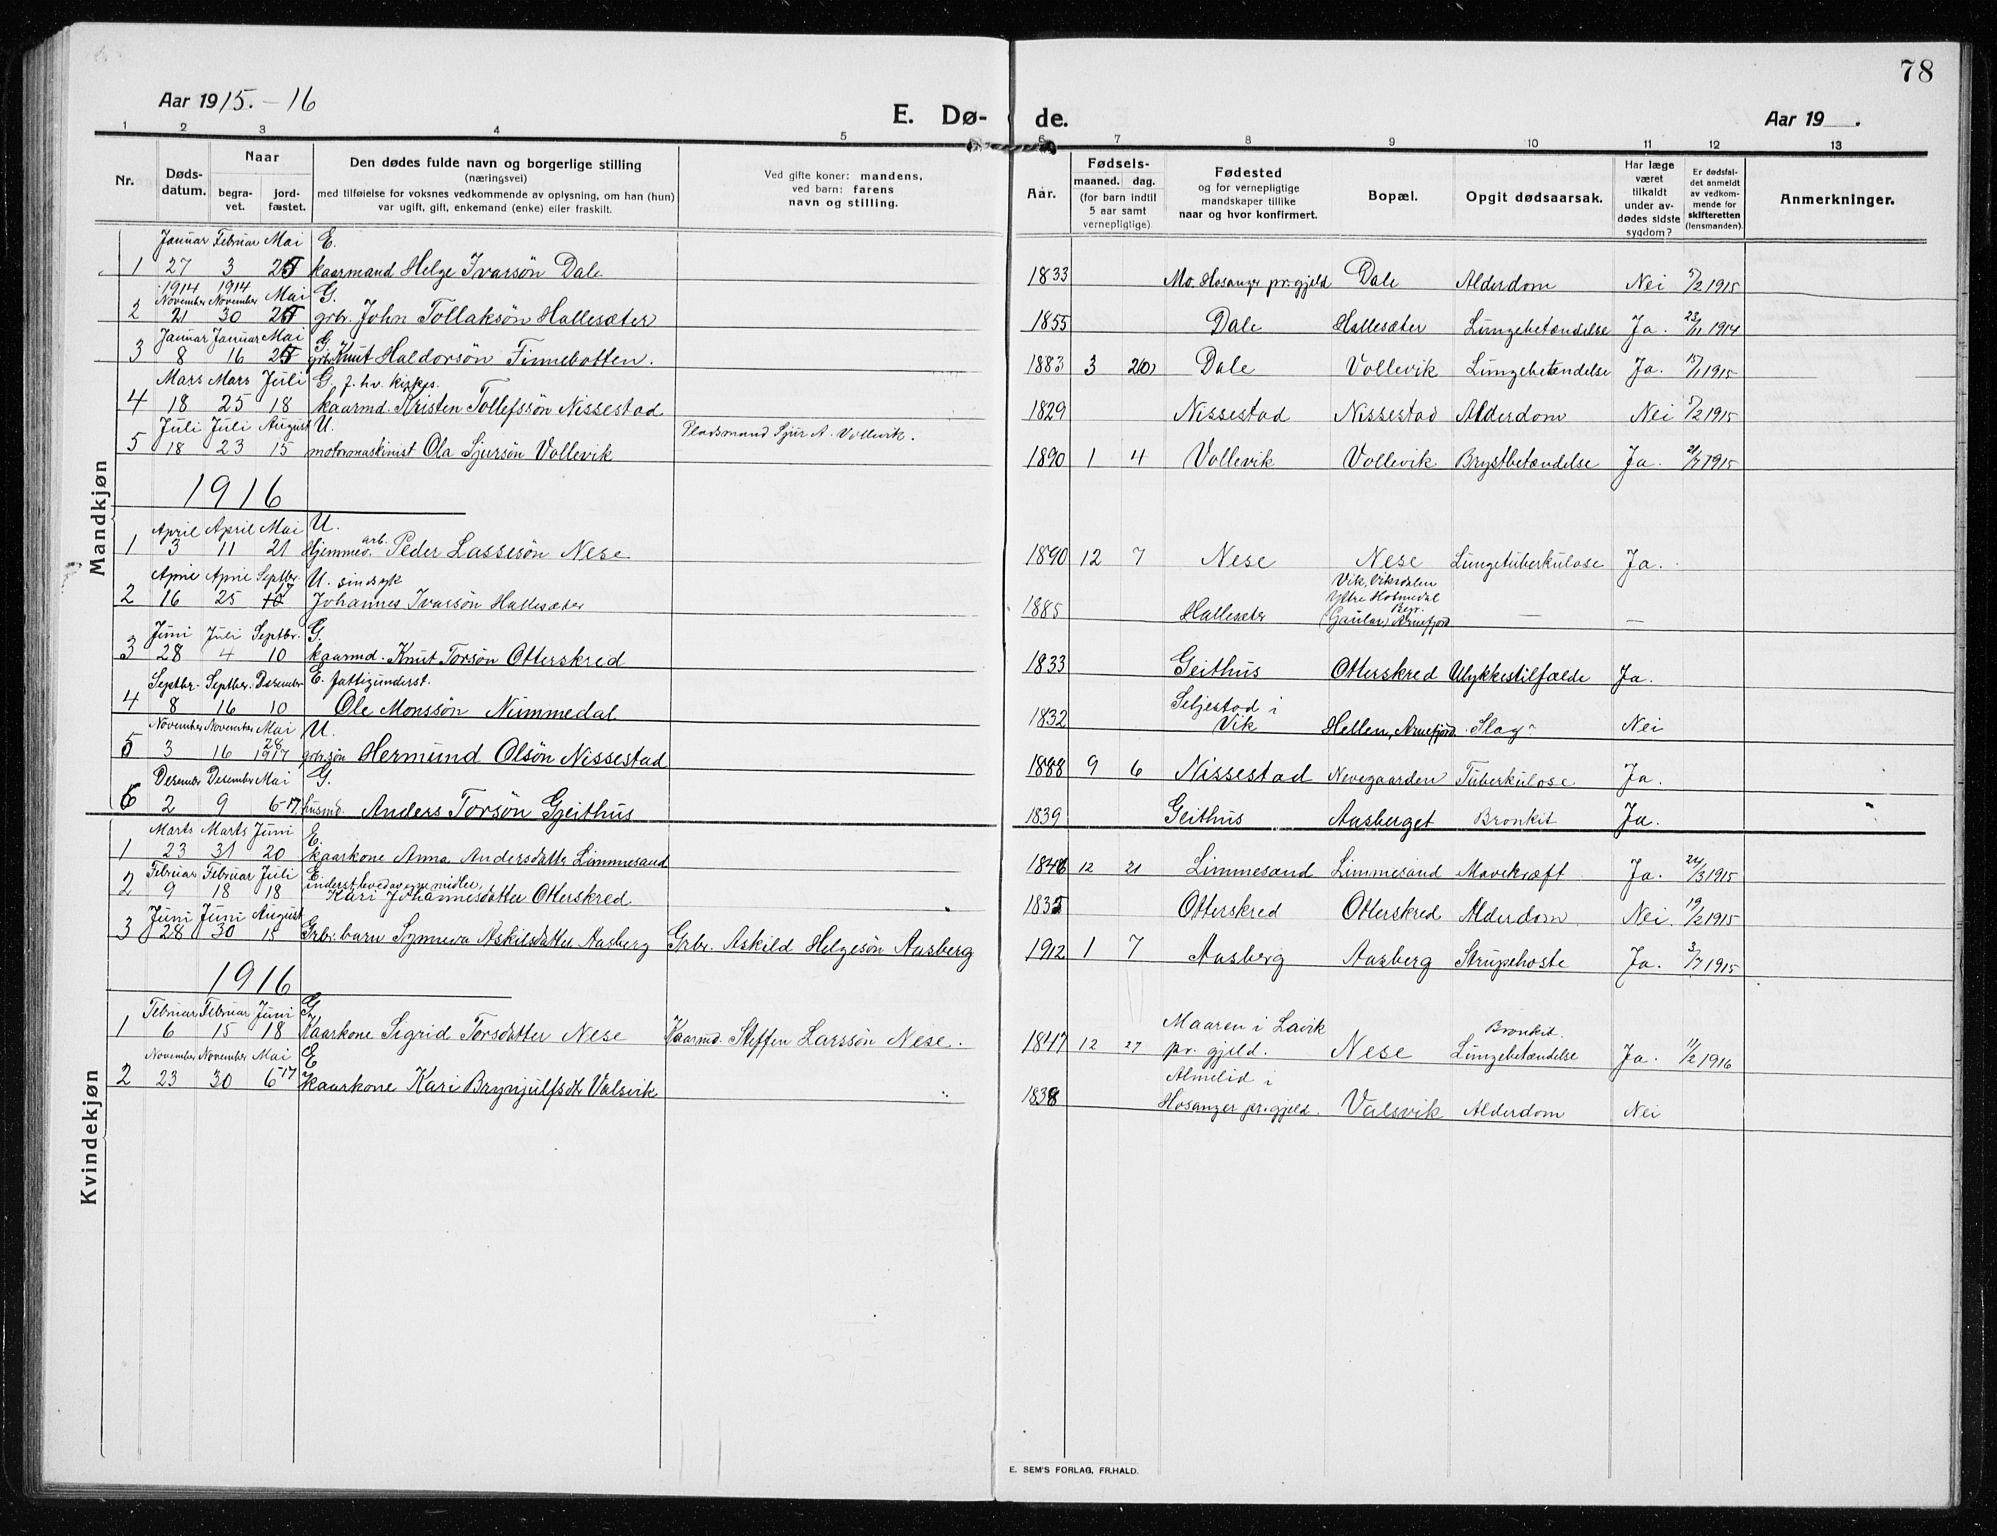 78
Aar 1915.-16
E. Dø- de.
Aar 19 .
1 2 3 4 5 6 7 8 9 10 11 12 13
Nr. Dødsdatum. Naar begravet. jordfæstet. Den dødes fulde navn og borgerlige stilling (næringsvei) med tilføielse for voksnes vedkommende av oplysning, om han (hun) var ugift, gift, enkemand (enke) eller fraskilt. Ved gifte koner: mandens, ved barn: farens navn og stilling. Aar. Fødsels- maaned. dag. (for barn indtil 5 aar samt vernepligtige). Fødested og for vernepligtige mandskaper tillike naar og hvor konfirmert. Bopæl. Opgit dødsaarsak. Har læge været tilkaldt under avdødes sidste sygdom? Er dødsfaldet anmeldt av vedkommende for skifteretten (lensmanden). Anmerkninger.
Mandkjøn
Januar Februar Mai E.
1 27 3 25 kaarmand Helge Ivarsøn Dale 1833 Mo. Hosanger pr.gjeld Dale Alderdom Nei 5/2 1915
1914 1914
November November Mai G.
2 21 30 25 grbr. John Tollaksøn Hallesæter 1855 Dale Hallesæter Lungebetændelse Ja. 23/11 1914
Januar Januar Mai G.
3 8 16 25 grbr. Knut Haldorsøn Finnebotten. 1883 3 20 Dale Vollevik Lungebetændelse Ja. 15/1 1915
Mars Mars Juli G. f. hv. kirkes.
4 18 25 18 kaarmd. Kristen Tollefssøn Nissestad 1829 Nissestad Nissestad Alderdom Nei 5/2 1915
Juli Juli August U. Pladsmand Sjur A. Vollevik.
5 18 23 15 motormaskinist Ola Sjursøn Vollevik 1890 1 4 Vollevik Vollevik Brystbetændelse Ja. 21/7 1915
1916
April April Mai U.
1 3 11 21 Hjemmev. arb. Peder Lassesøn Nese 1890 12 7 Nese Nese Lungetuberkulose Ja.
April April Septbr. U. sindsyk Vik, Viksdalen
2 16 25 17 Johannes Ivarsøn Hallesæter 1885 Hallesæter Ytre Holmedal
(Gaular) Begr. Arnefjord — —
Juni Juli Septbr. G.
3 28 4 10 kaarmd. Knut Torsøn Otterskred 1833 Geithus Otterskred Ulykkestilfælde Ja.
Septbr. Septbr. Desember E. fattigunderst. Seljestad i
4 8 16 10 Ole Monssøn Nummedal 1832 Vik Hellen, Arnefjord Slag Nei
November November Mai U.
5 3 16 28 1917 grbr.søn Hermund Olsøn Nissestad 1888 9 6 Nissestad Nevegaarden Tuberkulose Ja.
Desember Desember Mai G.
6 2 9 6-17. husmd. Anders Torsøn Gjeithus 1839 Geithus Aasberget Bronkit Ja.
Kvindekjøn
Marts Marts Juni E.
1 23 31 20 kaarkone Anna Andersdatter Limmesand 1846 12 21 Limmesand Limmesand Mavekræft Ja. 24/3 1915
Februar Februar Juli E. inderst leved av egne midler.
2 9 18 18 Kari Johannesdatter Otterskred 1835 Otterskred Otterskred Alderdom Nei. 19/2 1915
Juni Juni August
3 28 30 15 Grbr. barn Synneva Askilsdatter Aasberg Grbr. Askild Helgesøn Aasberg 1912 1 7 Aasberg Aasberg Strupehoste Ja. 3/7 1915
1916
Februar Februar Juni G. Maaren i Lavik Bronkit.
1 6 15 18 Kaarkone Sigrid Torsdatter Nese Kaarmd. Steffen Larssøn Nese. 1847 12 27 pr. gjeld. Nese Lungebetændelse Ja. 11/2 1916
November November Mai E Almelid i
2 23 30 6 17 kaarkone Kari Brynjulfsdtr Valsvik 1838 Hosanger pr.gjeld. Valsvik Alderdom Nei
E. SEM'S FORLAG, FR.HALD.